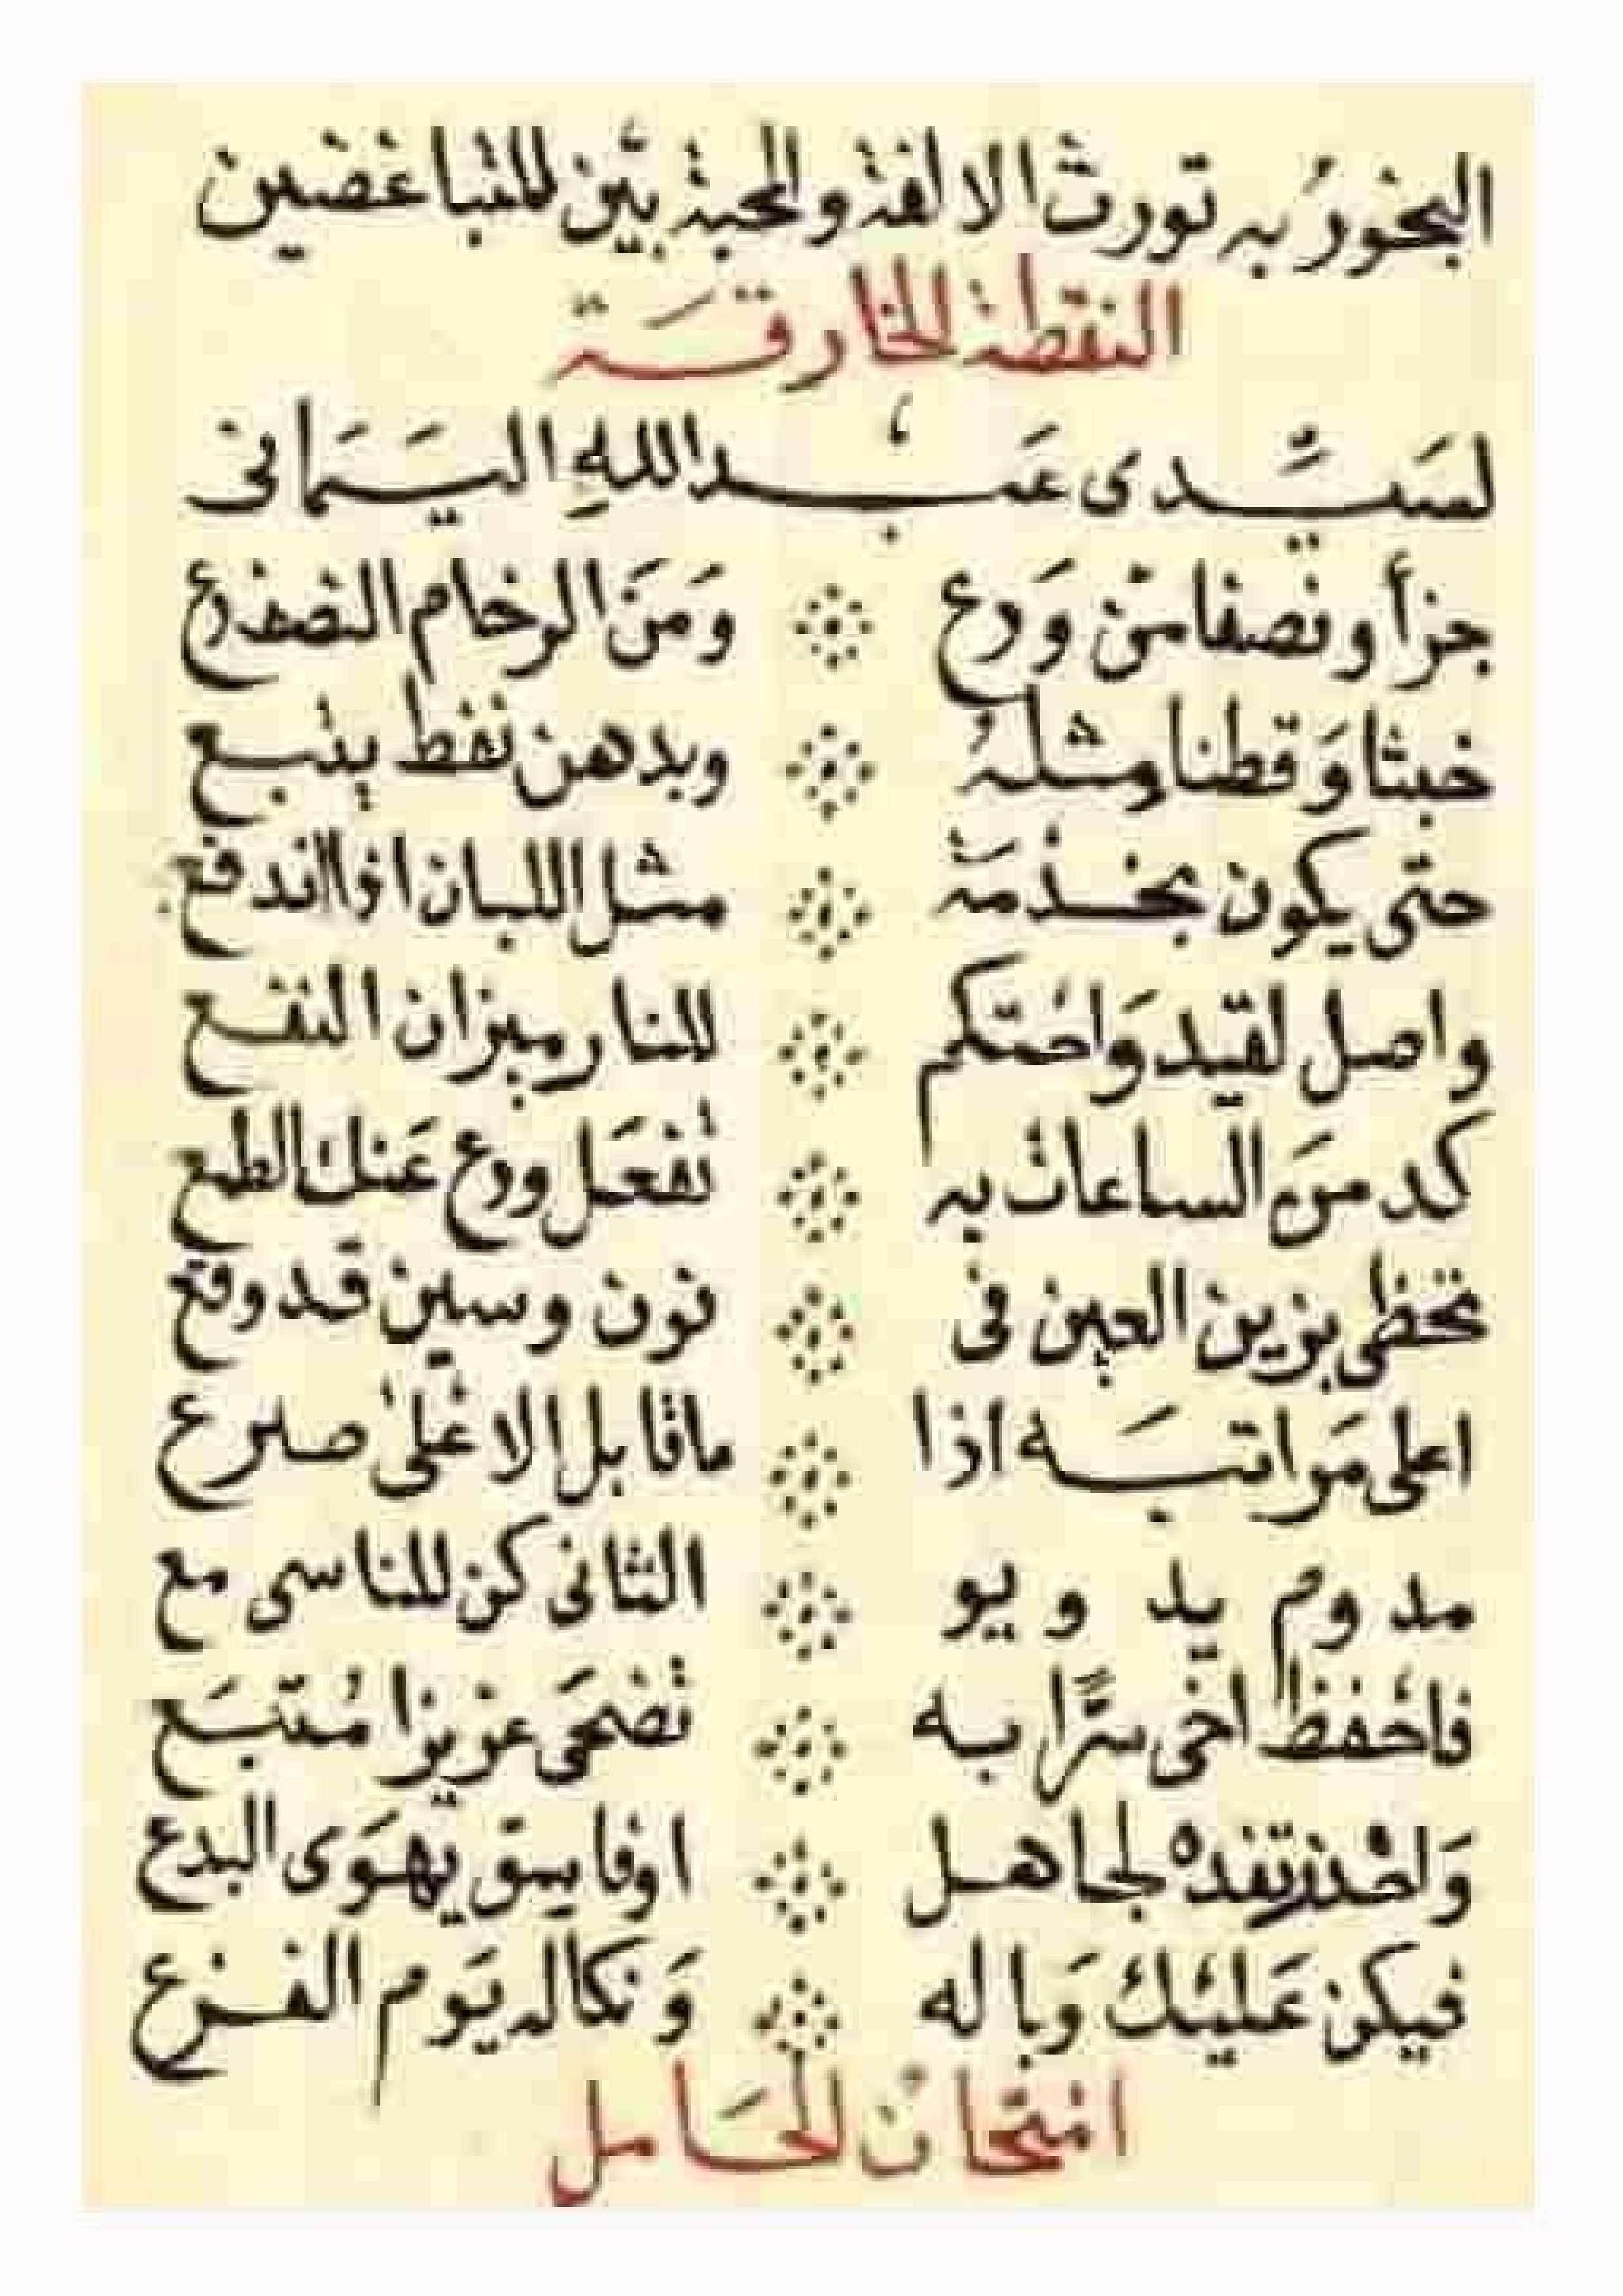 البخورُ به تورثُ الالفة والمحبة بَيْن المتباغضين
النقطة الخارقَة
لسَيِّدى عَبدالله اليَمَانى
جزأ ونصفا منْ وَدع ومَنَ الرخام النصف رع
خبثا وَقطنا مثلهُ وبدهن نفط يتبع
حتى يكون بخدمَة مثل اللبان اذا اندفع
واصل لقيد وَاحْتكم للنار ميزان النفع
كد منَ الساعات به تفعَل ودع عَنك الطمع
تحظى بزين العين فى نون وسين قد وقع
اعلى مَراتبَه اذا ماقابل الاعْلىٰ صرع
مد وم يد و يو الثانى كن للناسى مع
فاحْفظ اخى سرًّا به تضحَى عزيزا مُتبَع
وَاحْذر تفدْه لجاهل اوفاسق يهوَى البدع
فيكن عَليْك وَباله وَنكاله يَوم الفزع
امتحانْ الحَامل